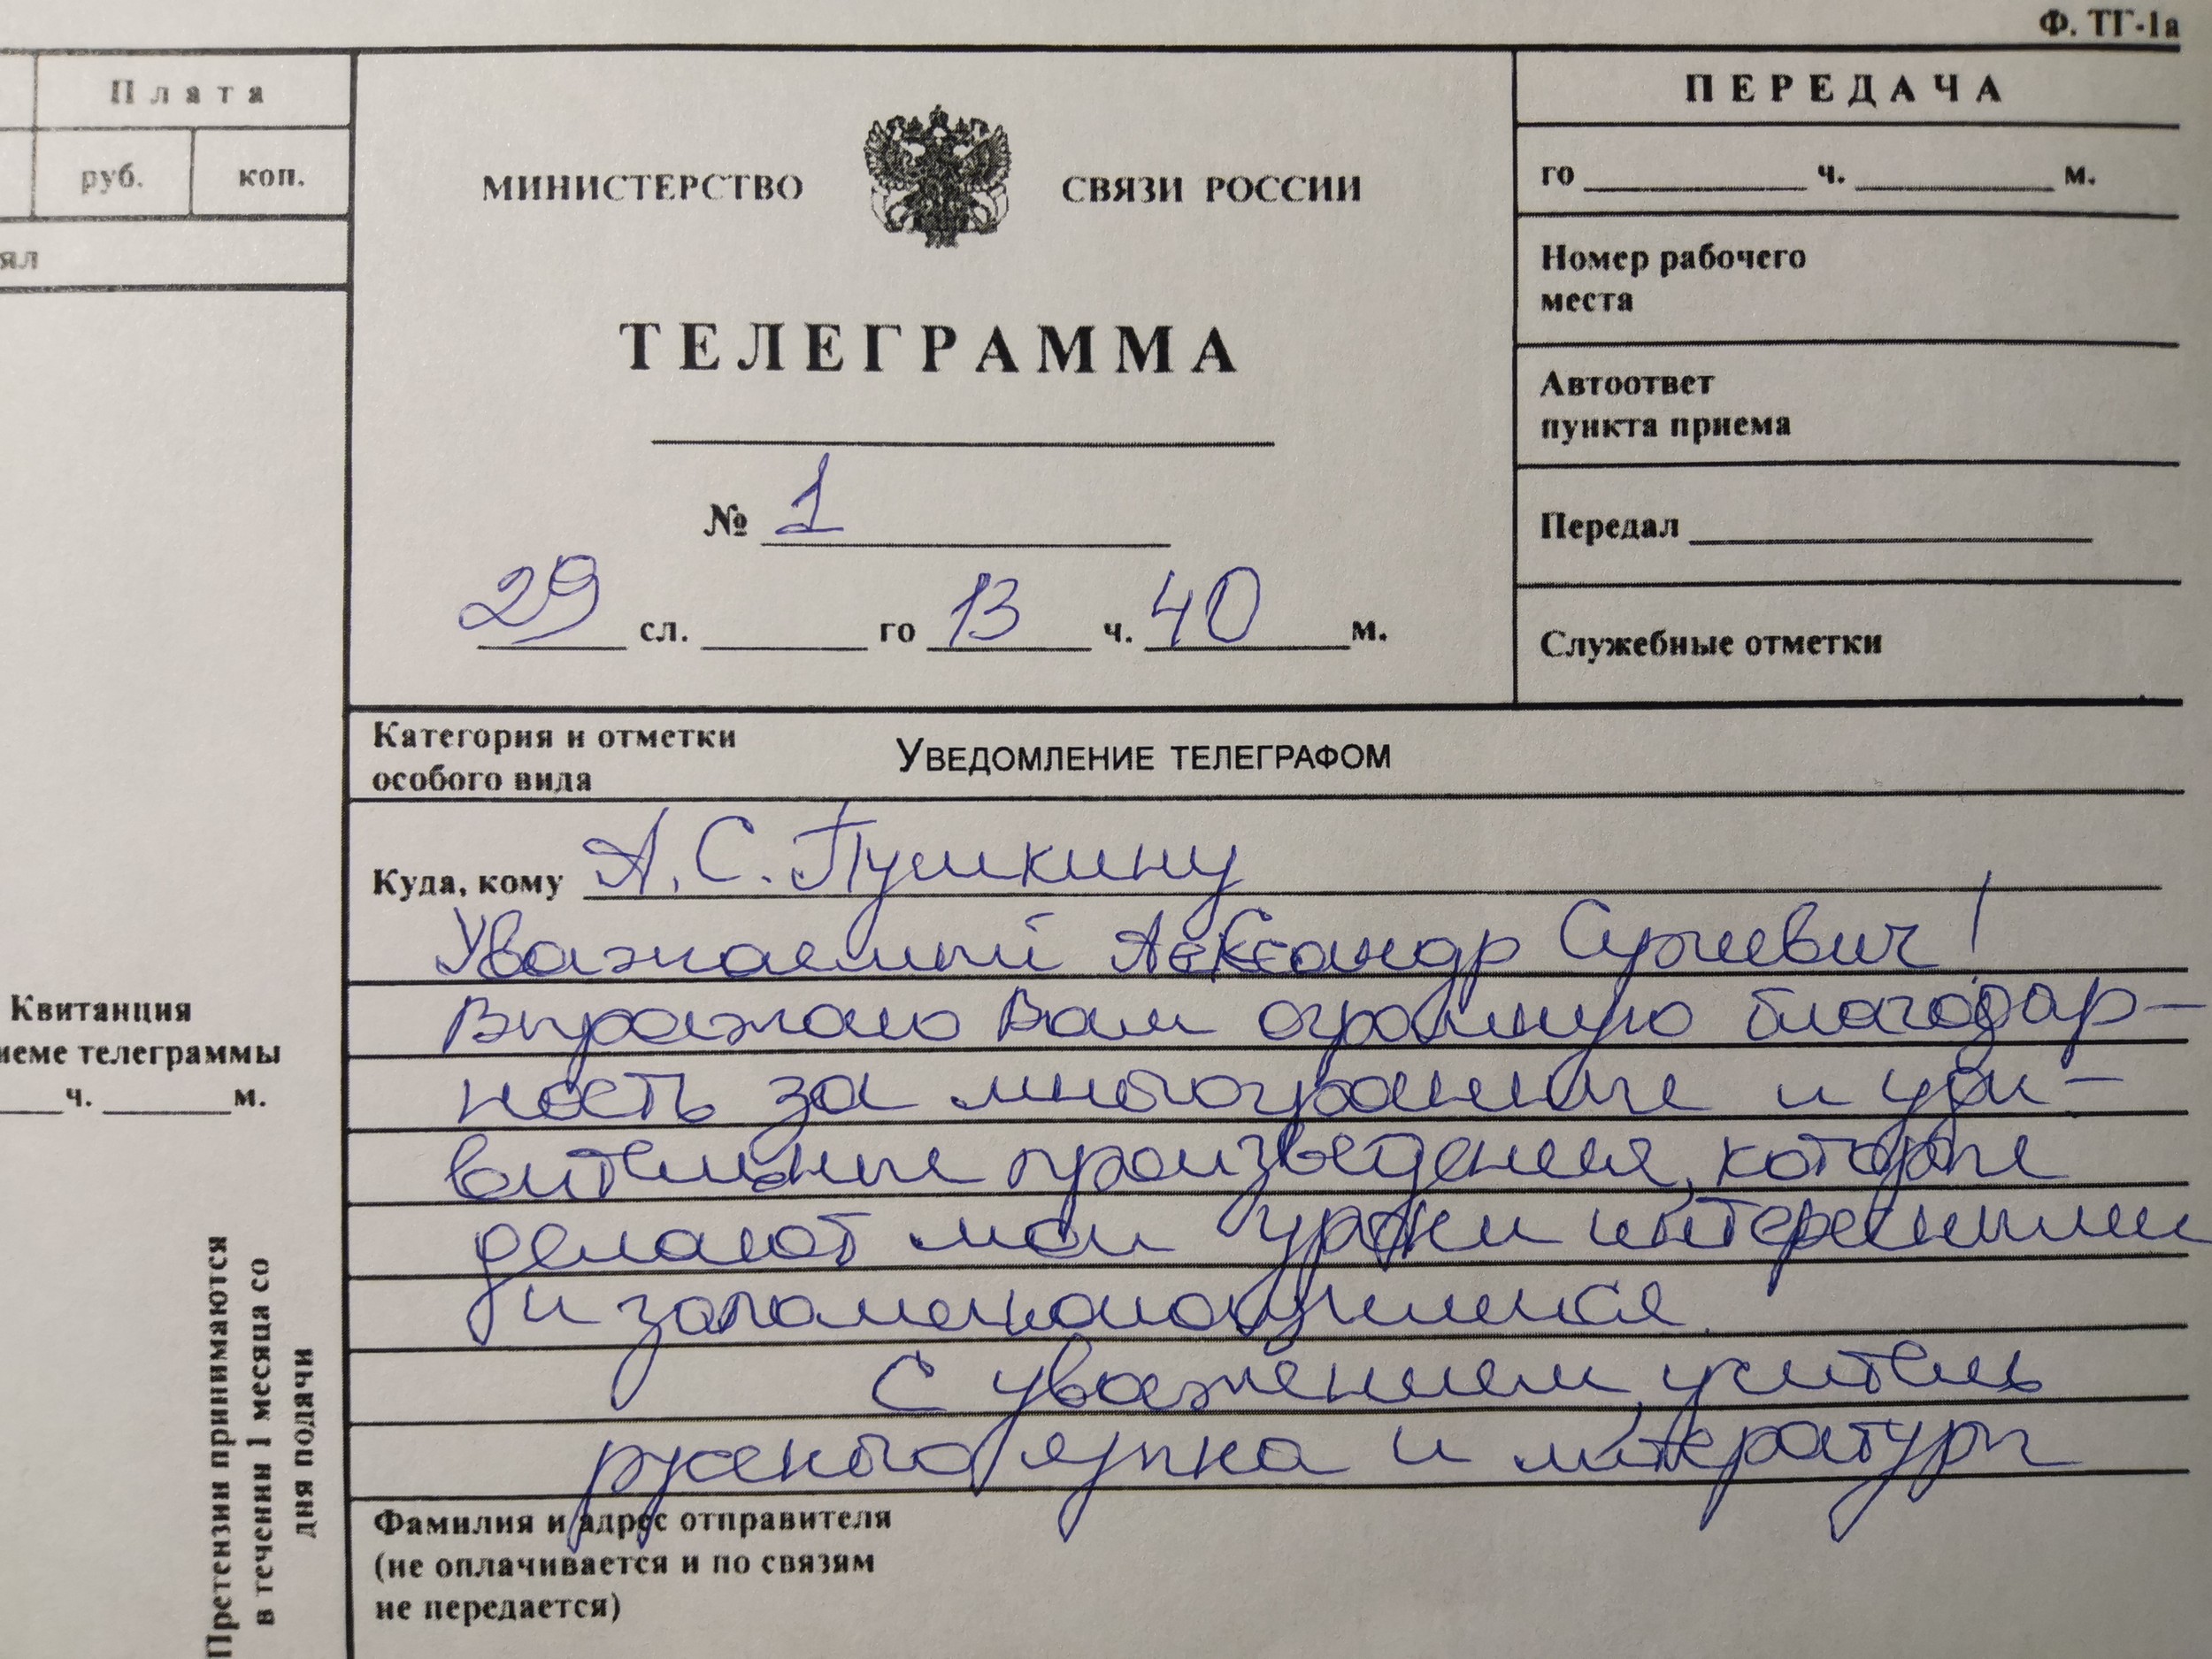 Ф. ТГ-1а
Плата
руб. коп.
ял
МИНИСТЕРСТВО СВЯЗИ РОССИИ
ТЕЛЕГРАММА
№ 1
29 сл. го 13 ч. 40 м.
ПЕРЕДАЧА
го ч. м.
Номер рабочего
места
Автоответ
пункта приема
Передал
Служебные отметки
Категория и отметки
особого вида
УВЕДОМЛЕНИЕ ТЕЛЕГРАФОМ
Куда, кому А. С. Пушкину
Уважаемый Александр Сергеевич!
Выражаю Вам огромную благодар-
ность за многогранные и уди-
вительные произведения, которые
делают мои уроки интересными
и запоминающимися.
С уважением, учитель
русского языка и литературы
Фамилия и адрес отправителя
(не оплачивается и по связям
не передается)
Квитанция
иеме телеграммы
ч. м.
Претензии принимаются
в течении 1 месяца со
дня подачи